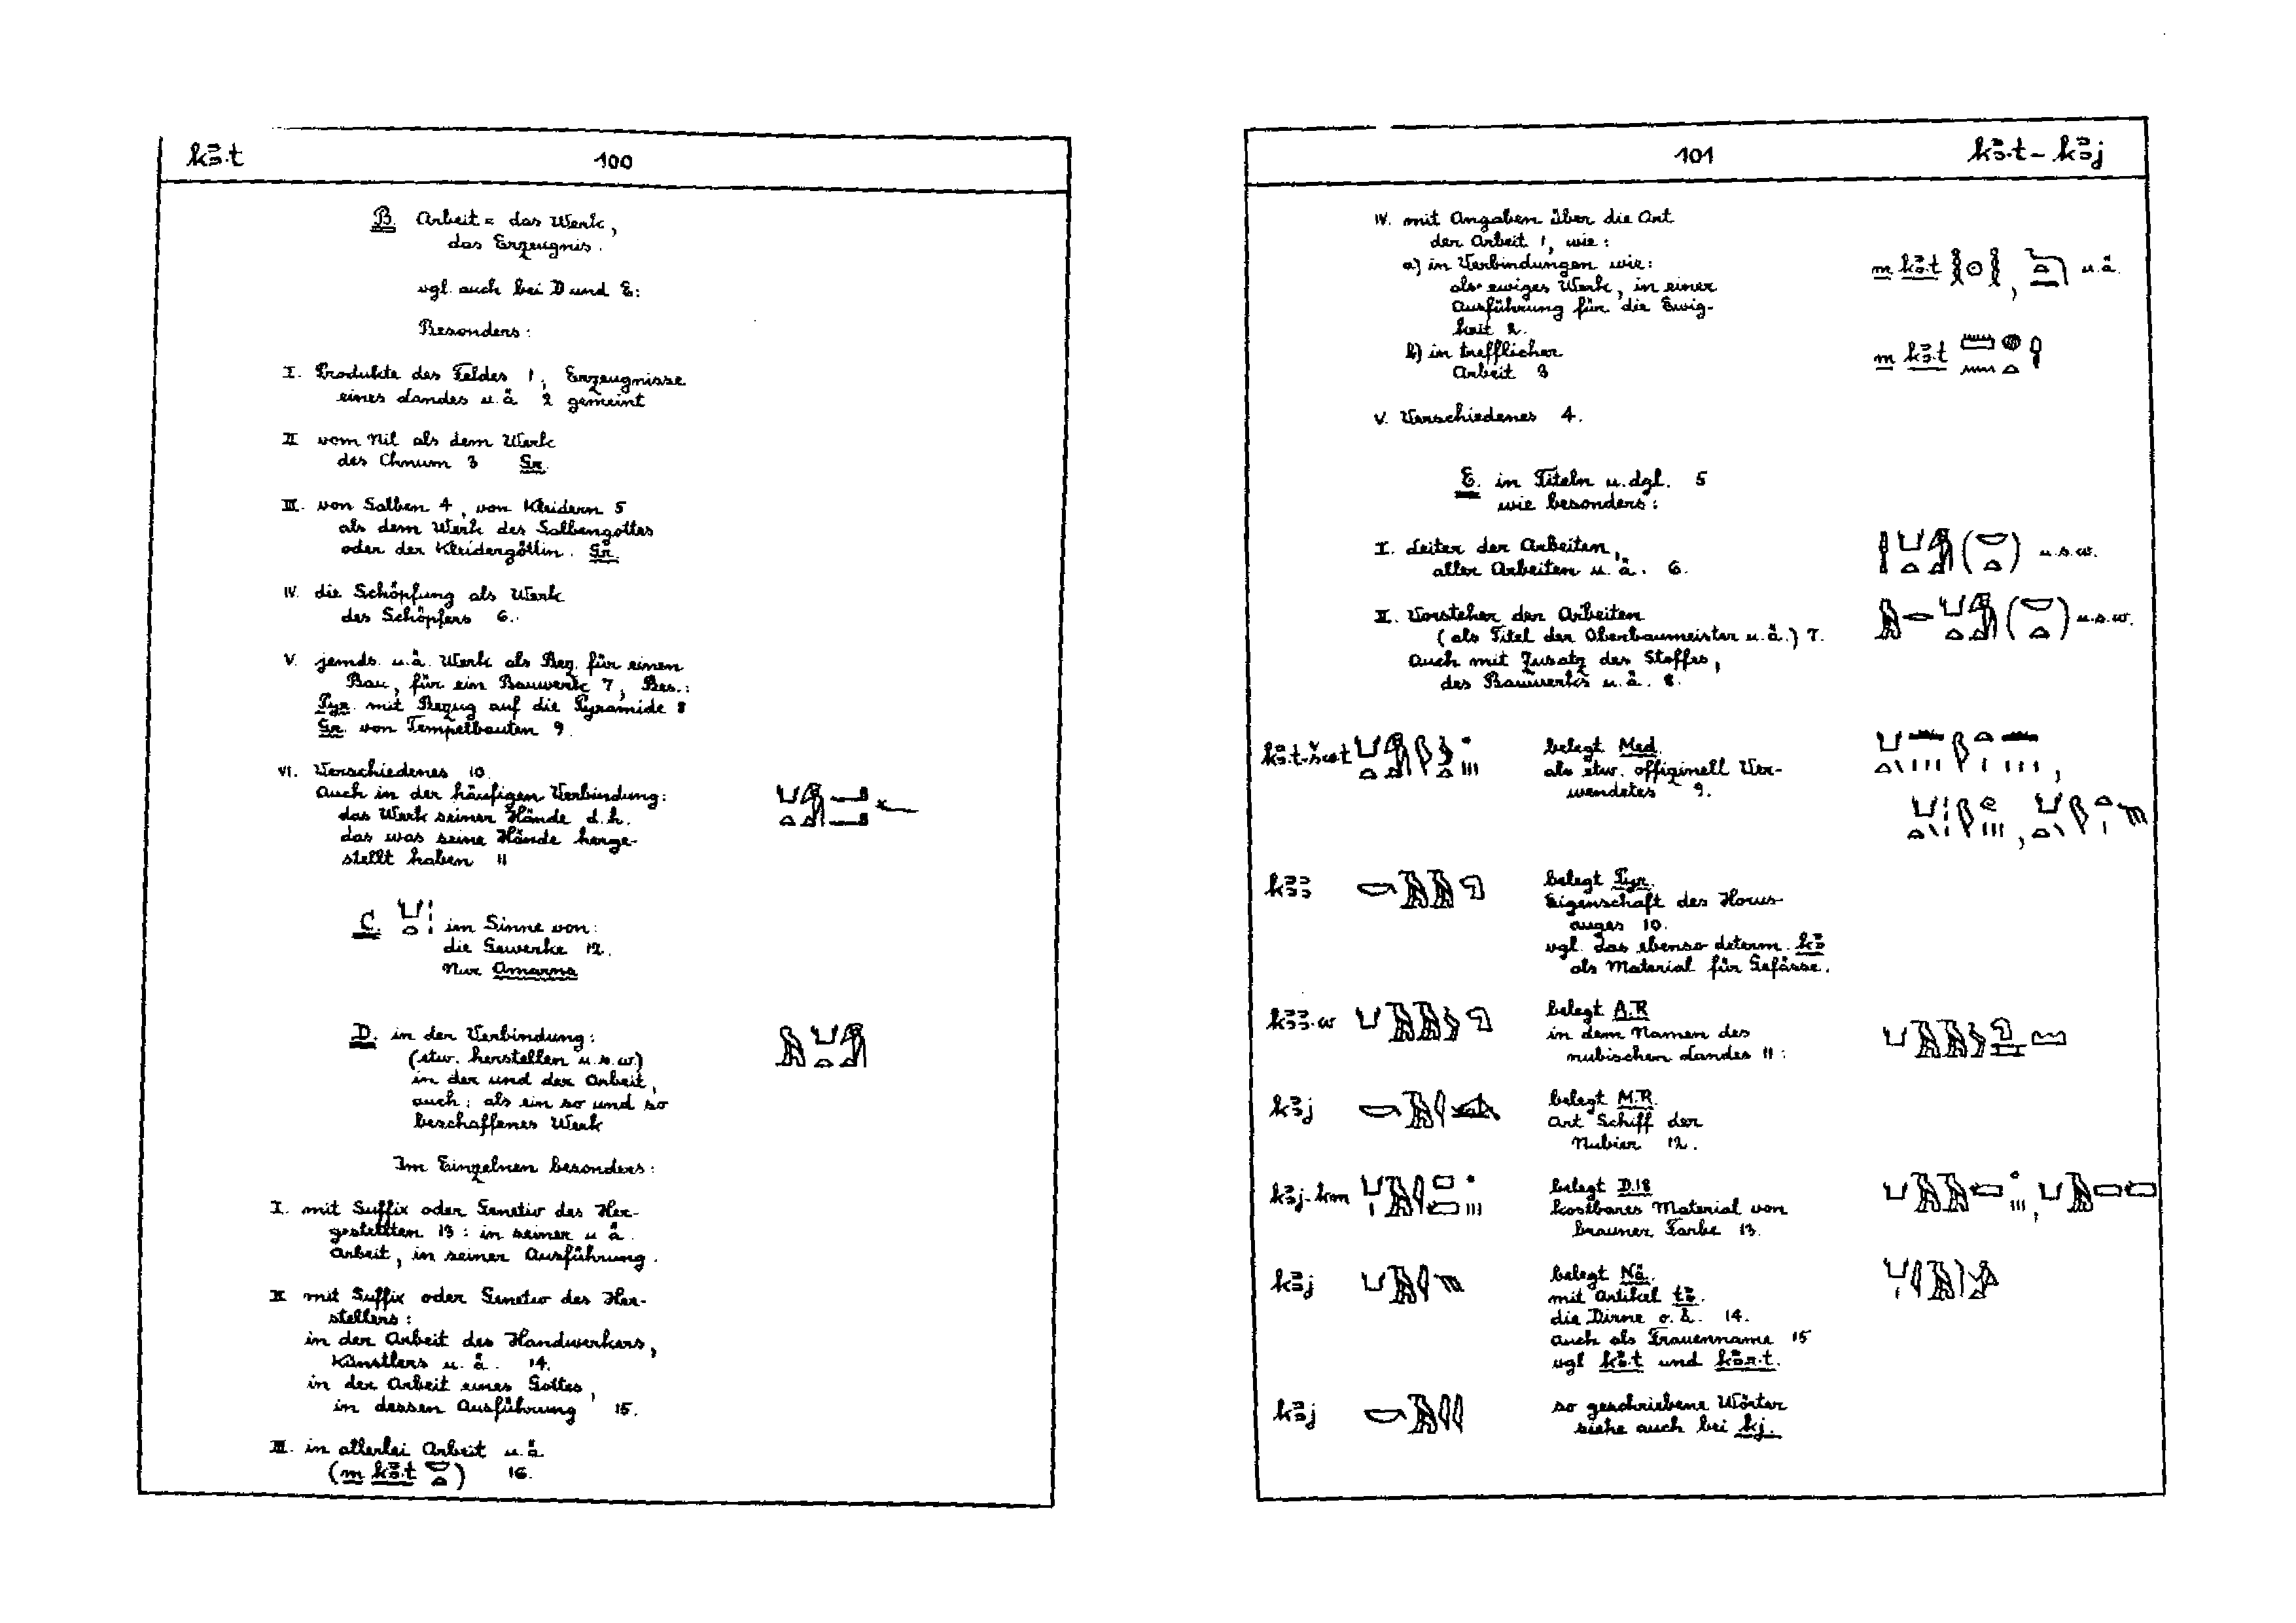 kꜣ.t
100
B. Arbeit = das Werk,
das Erzeugnis.
vgl. auch bei D und E:
Besonders:
I. Produkte des Feldes 1, Erzeugnisse
eines Landes u.ä 2 gemeint
II vom Nil als dem Werk
des Chnum 3 Gr.
III. von Salben 4, von Kleidern 5
als dem Werk des Salbengottes
oder der Kleidergöttin. Gr.
IV. die Schöpfung als Werk
des Schöpfers 6.
V. jemds. u.ä. Werk als Bez. für einen
Bau, für ein Bauwerk 7, Bes.:
Pyr. mit Bezug auf die Pyramide 8
Gr. von Tempelbauten 9.
VI. Verschiedenes 10.
Auch in der häufigen Verbindung:
das Werk seiner Hände d.h.
das was seine Hände herge-
stellt haben 11
C. im Sinne von:
die Gewerke 12.
Nur Amarna
D. in der Verbindung:
(etw. herstellen u.s.w)
in der und der Arbeit,
auch: als ein so und so
beschaffenes Werk
Im Einzelnen besonders:
I. mit Suffix oder Genetiv des Her-
gestellten 13: in seiner u ä.
Arbeit, in seiner Ausführung.
II mit Suffix oder Genetiv des Her-
stellers:
in der Arbeit des Handwerkers,
Künstlers u. ä. 14.
in der Arbeit eines Gottes,
in dessen Ausführung 15.
III. in allerlei Arbeit u.ä
(m kꜣ.t 𓎟𓏏) 16.
101
kꜣ.t – kꜣj
IV. mit Angaben über die Art
der Arbeit 1, wie:
a) in Verbindungen wie: m kꜣ.t u.ä.
als ewiges Werk, in einer
Ausführung für die Ewig-
keit 2.
b) in trefflicher m kꜣ.t
Arbeit 3
V. Verschiedenes 4.
E. in Titeln u.dgl. 5
wie besonders:
I. Leiter der Arbeiten, u.s.w.
aller Arbeiten u. ä. 6.
II. Vorsteher der Arbeiten u.s.w.
(als Titel der Oberbaumeister u.ä.) 7.
Auch mit Zusatz des Stoffes,
des Bauwerks u. ä. 8.
kꜣ.t-šw.t belegt Med.
als etw. offizinell Ver-
wendetes 9.
kꜣꜣ belegt Pyr.
Eigenschaft des Horus-
auges 10.
vgl. das ebenso determ. kꜣ
als Material für Gefässe.
kꜣꜣ.w belegt A.R
in dem Namen des
nubischen Landes 11:
kꜣj belegt M.R.
Art Schiff der
Nubier 12.
kꜣj-km belegt D.18
kostbares Material von
brauner Farbe 13.
kꜣj belegt Nä.
mit Artikel tꜣ.
die Dirne o.ä. 14.
auch als Frauenname 15
vgl kꜣ.t und kꜣr.t.
kꜣj so geschriebene Wörter
siehe auch bei kj.